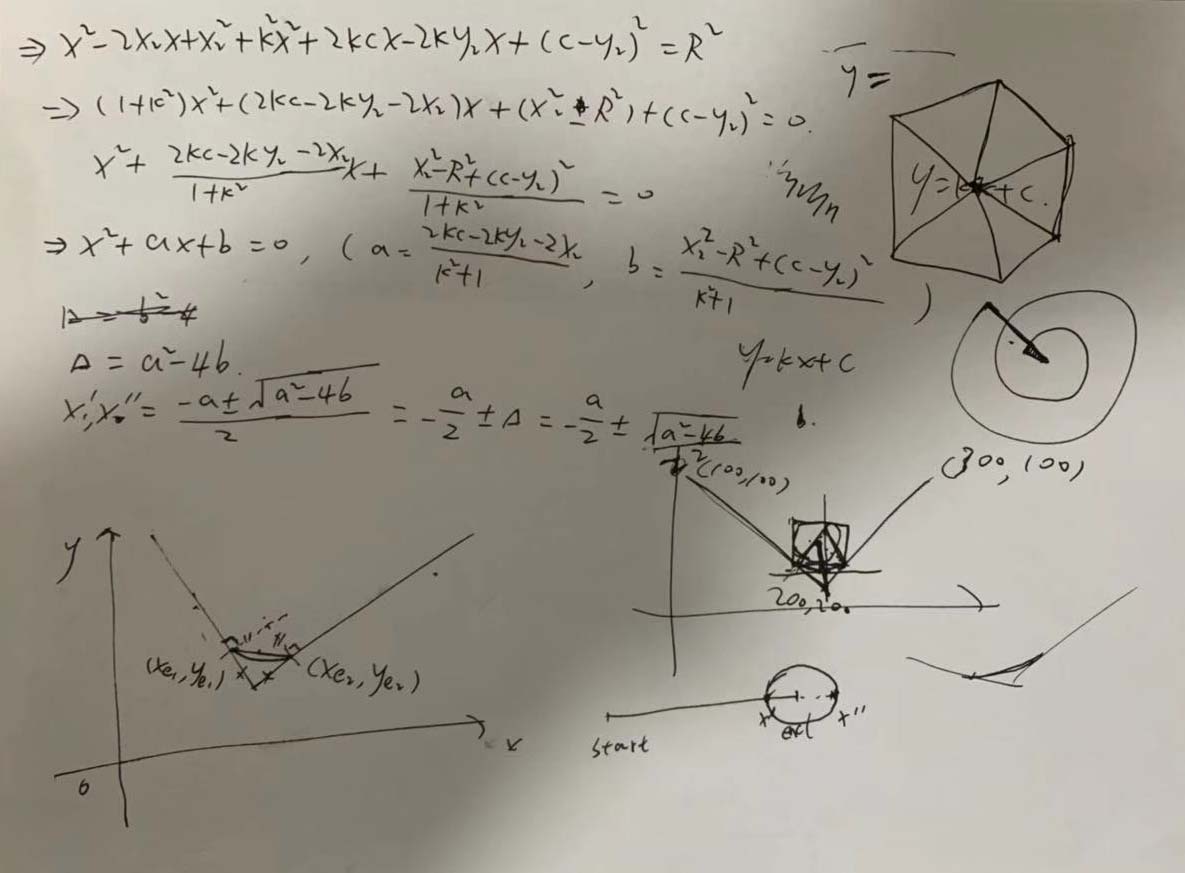 ⇒ x² - 2x₂x + x₂² + k²x² + 2kcx - 2ky₂x + (c-y₂)² = R²
⇒ (1+k²)x² + (2kc-2ky₂-2x₂)x + (x₂² - R²) + (c-y₂)² = 0.
y =
x² + (2kc-2ky₂-2x₂)/(1+k²) x + (x₂²-R²+(c-y₂)²)/(1+k²) = 0
y=kx+c.
⇒ x² + ax + b = 0, ( a = (2kc-2ky₂-2x₂)/(k²+1), b = (x₂²-R²+(c-y₂)²)/(k²+1) )
Δ = a²-4b.
y=kx+c
x', x'' = (-a±√(a²-4b))/2 = -a/2 ± Δ = -a/2 ± √(a²-4b)/2
(100,100)
(300,100)
200,20.
y
(xe₁, ye₁)
(xe₂, ye₂)
x
0
start
x'
x''